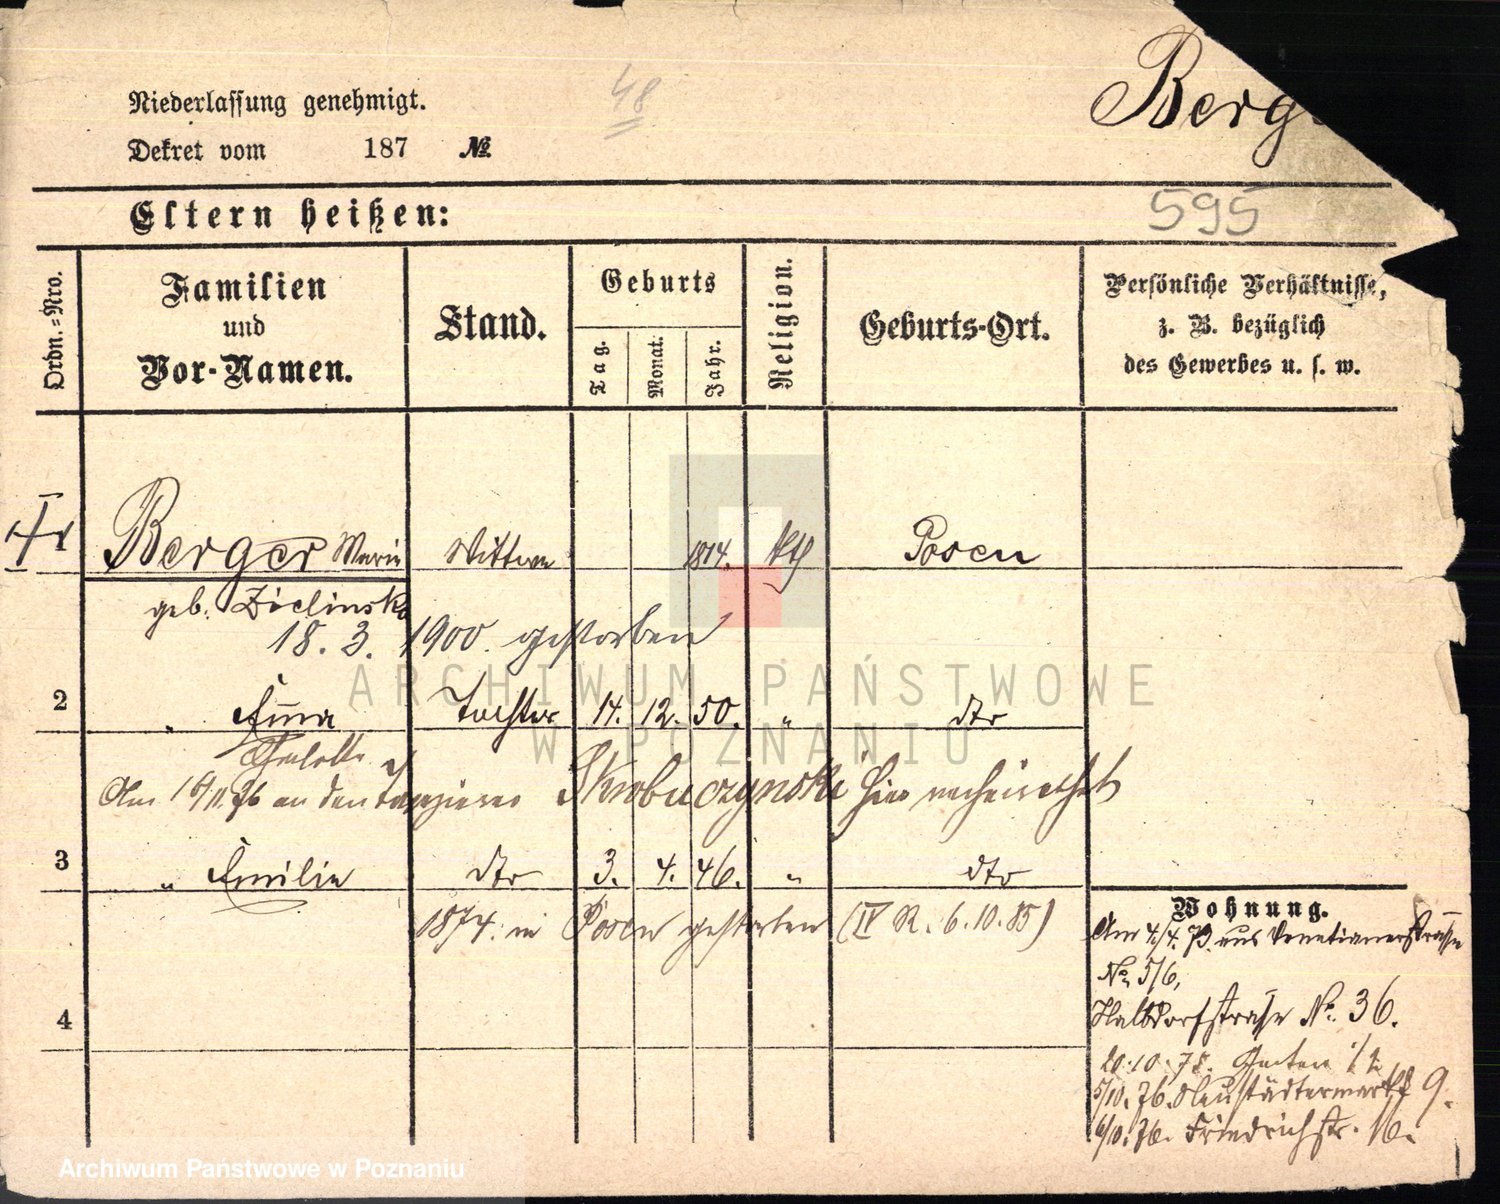 Niederlassung genehmigt.
48
Berge
Dekret vom 187 №
Eltern heißen:
595
Ordn.=Nro.
Familien und Vor-Namen.
Stand.
Geburts
Tag.
Monat.
Jahr.
Religion.
Geburts-Ort.
Persönliche Verhältnisse,
z. B. bezüglich
des Gewerbes u. s. w.
1 Berger Marie Wittwe 1814. kth Posen
geb. Zielinska
18. 3. 1900. gestorben
ARCHIWUM PAŃSTWOWE
W POZNANIU
2 " Anna Tochter 14. 12. 50. " dto
Am 16/11.76 an den Tapezierer Skrobuczynski hier verheirathet
3 " Emilie dto 3. 4. 46. " dto
1874. in Posen gestorben (IV R. 6.10.85)
4
Wohnung.
Am 4/4. 73. aus Venetianerstrasse
No. 5/6,
Halbdorfstrasse No. 36.
20.10.75. Garten
5/10.76. Neustädtermarkt 9.
6/10.76. Friedrichstr. 16.
Archiwum Państwowe w Poznaniu